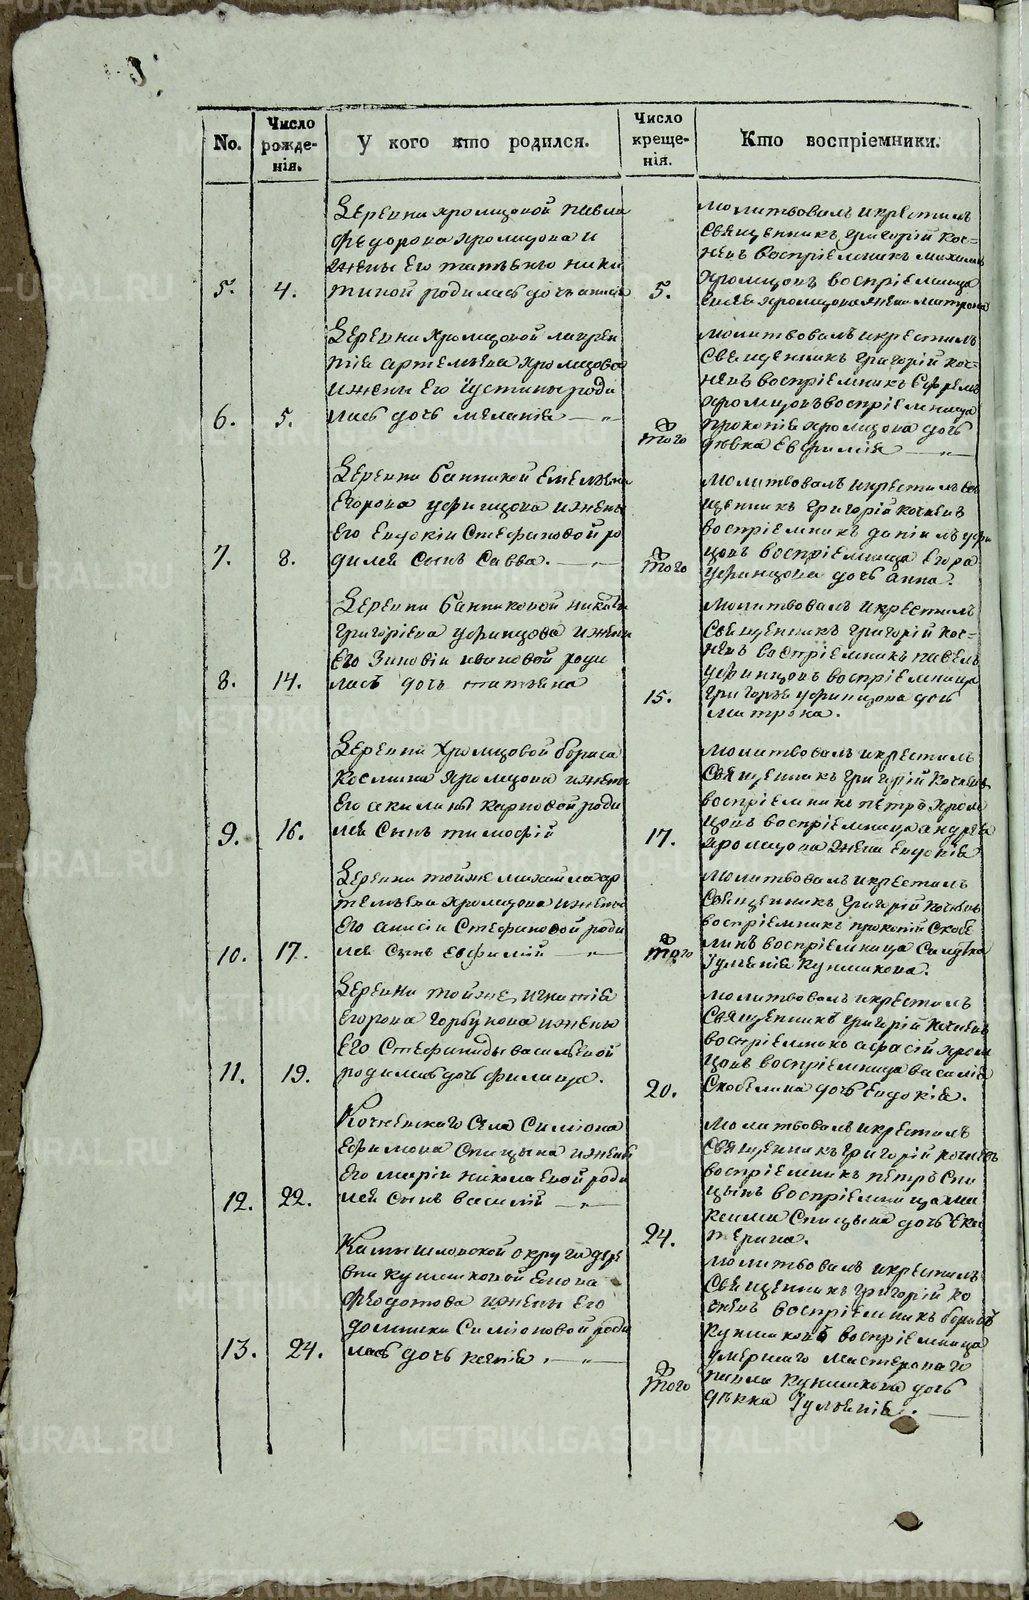 No.
Число рожде-нія.
У кого кто родился.
Число креще-нія.
Кто воспріемники.
5.
4.
Деревни Хромцовой павла
Федорова Хромцова и
жены Его татьяны ники
тиной родилась дочь
5.
молитвовалъ и крестилъ
Священникъ Григорій Коч=
невъ воспріемникъ
Хромцовъ воспріемница
Хромцова жена матрона
6.
5.
Деревни Хромцовой лаврен
тія артемьева Хромцова
и жены Его Іустины роди
лась дочь меланія
того
молитвовалъ и крестилъ
Священникъ Григорій Коч=
невъ воспріемникъ Ефремъ
Хромцовъ воспріемница
прокопія Хромцова дочь
девка Евфимія
7.
8.
Деревни банниковой Емельяна
Егорова уфинцова и жены
Его Евдокіи Стефановой ро
дился сынъ Савва.
того
молитвовалъ и крестилъ Свя
щенникъ Григорій кочневъ
воспріемникъ даніилъ уфи
цовъ воспріемница Егора
Уфинцова дочь анна.
8.
14.
Деревни банниковой никиты
григоріева уфинцова и жены
Его Зиновіи ивановой роди
лась дочь татьяна
15.
молитвовалъ и крестилъ
Священникъ Григорій Коч=
невъ воспріемникъ павелъ
уфинцовъ воспріемница
григорья уфинцова дочь
матрона.
9.
16.
Деревни Хромцовой бориса
Космина Хромцова и жены
Его акилины карповой роди
лся сынъ тимофій
17.
молитвовалъ и крестилъ
Священникъ Григорій Кочневъ
воспріемникъ петръ Хром
цовъ воспріемница андрея
Хромцова жена Евдокія
10.
17.
Деревни тойже михаила ар
темьева Хромцова и жены
Его анисіи Стефановой роди
лся Сынъ Евфимій
того
молитвовалъ и крестилъ
Священникъ Григорій Кочневъ
воспріемникъ прокопій Скобе
линъ воспріемница
Іуліянія Куншикова.
11.
19.
Деревни тойже, игнатія
Егорова Горбунова и жены
Его Стефаниды васильевой
родилась дочь филица.
20.
молитвовалъ и крестилъ
Священникъ Григорій Кочневъ
воспріемникъ Хром
цовъ воспріемница василія
Скобелина дочь Евдокія.
12.
22.
Кочневскаго Села Симіона
Ефимова Спицына и жены
Его маріи николаевой роди
лся сынъ василій
24.
молитвовалъ и крестилъ
Священникъ Григорій кочневъ
воспріемникъ петръ Спи
цынъ воспріемница ма
ксима Спицына дочь Ека
терина.
13.
24.
Камышловской округи дере
вни куншиковой
Федотова и жены Его
домники Симіоновой роди
лась дочь ксенія.
того
молитвовалъ и крестилъ
Священникъ Григорій ко
чневъ воспріемникъ борисъ
Куншиковъ воспріемница
умершаго мастероваго
павла Куншикова дочь
девка Іуліянія.
METRIKI.GASO-URAL.RU